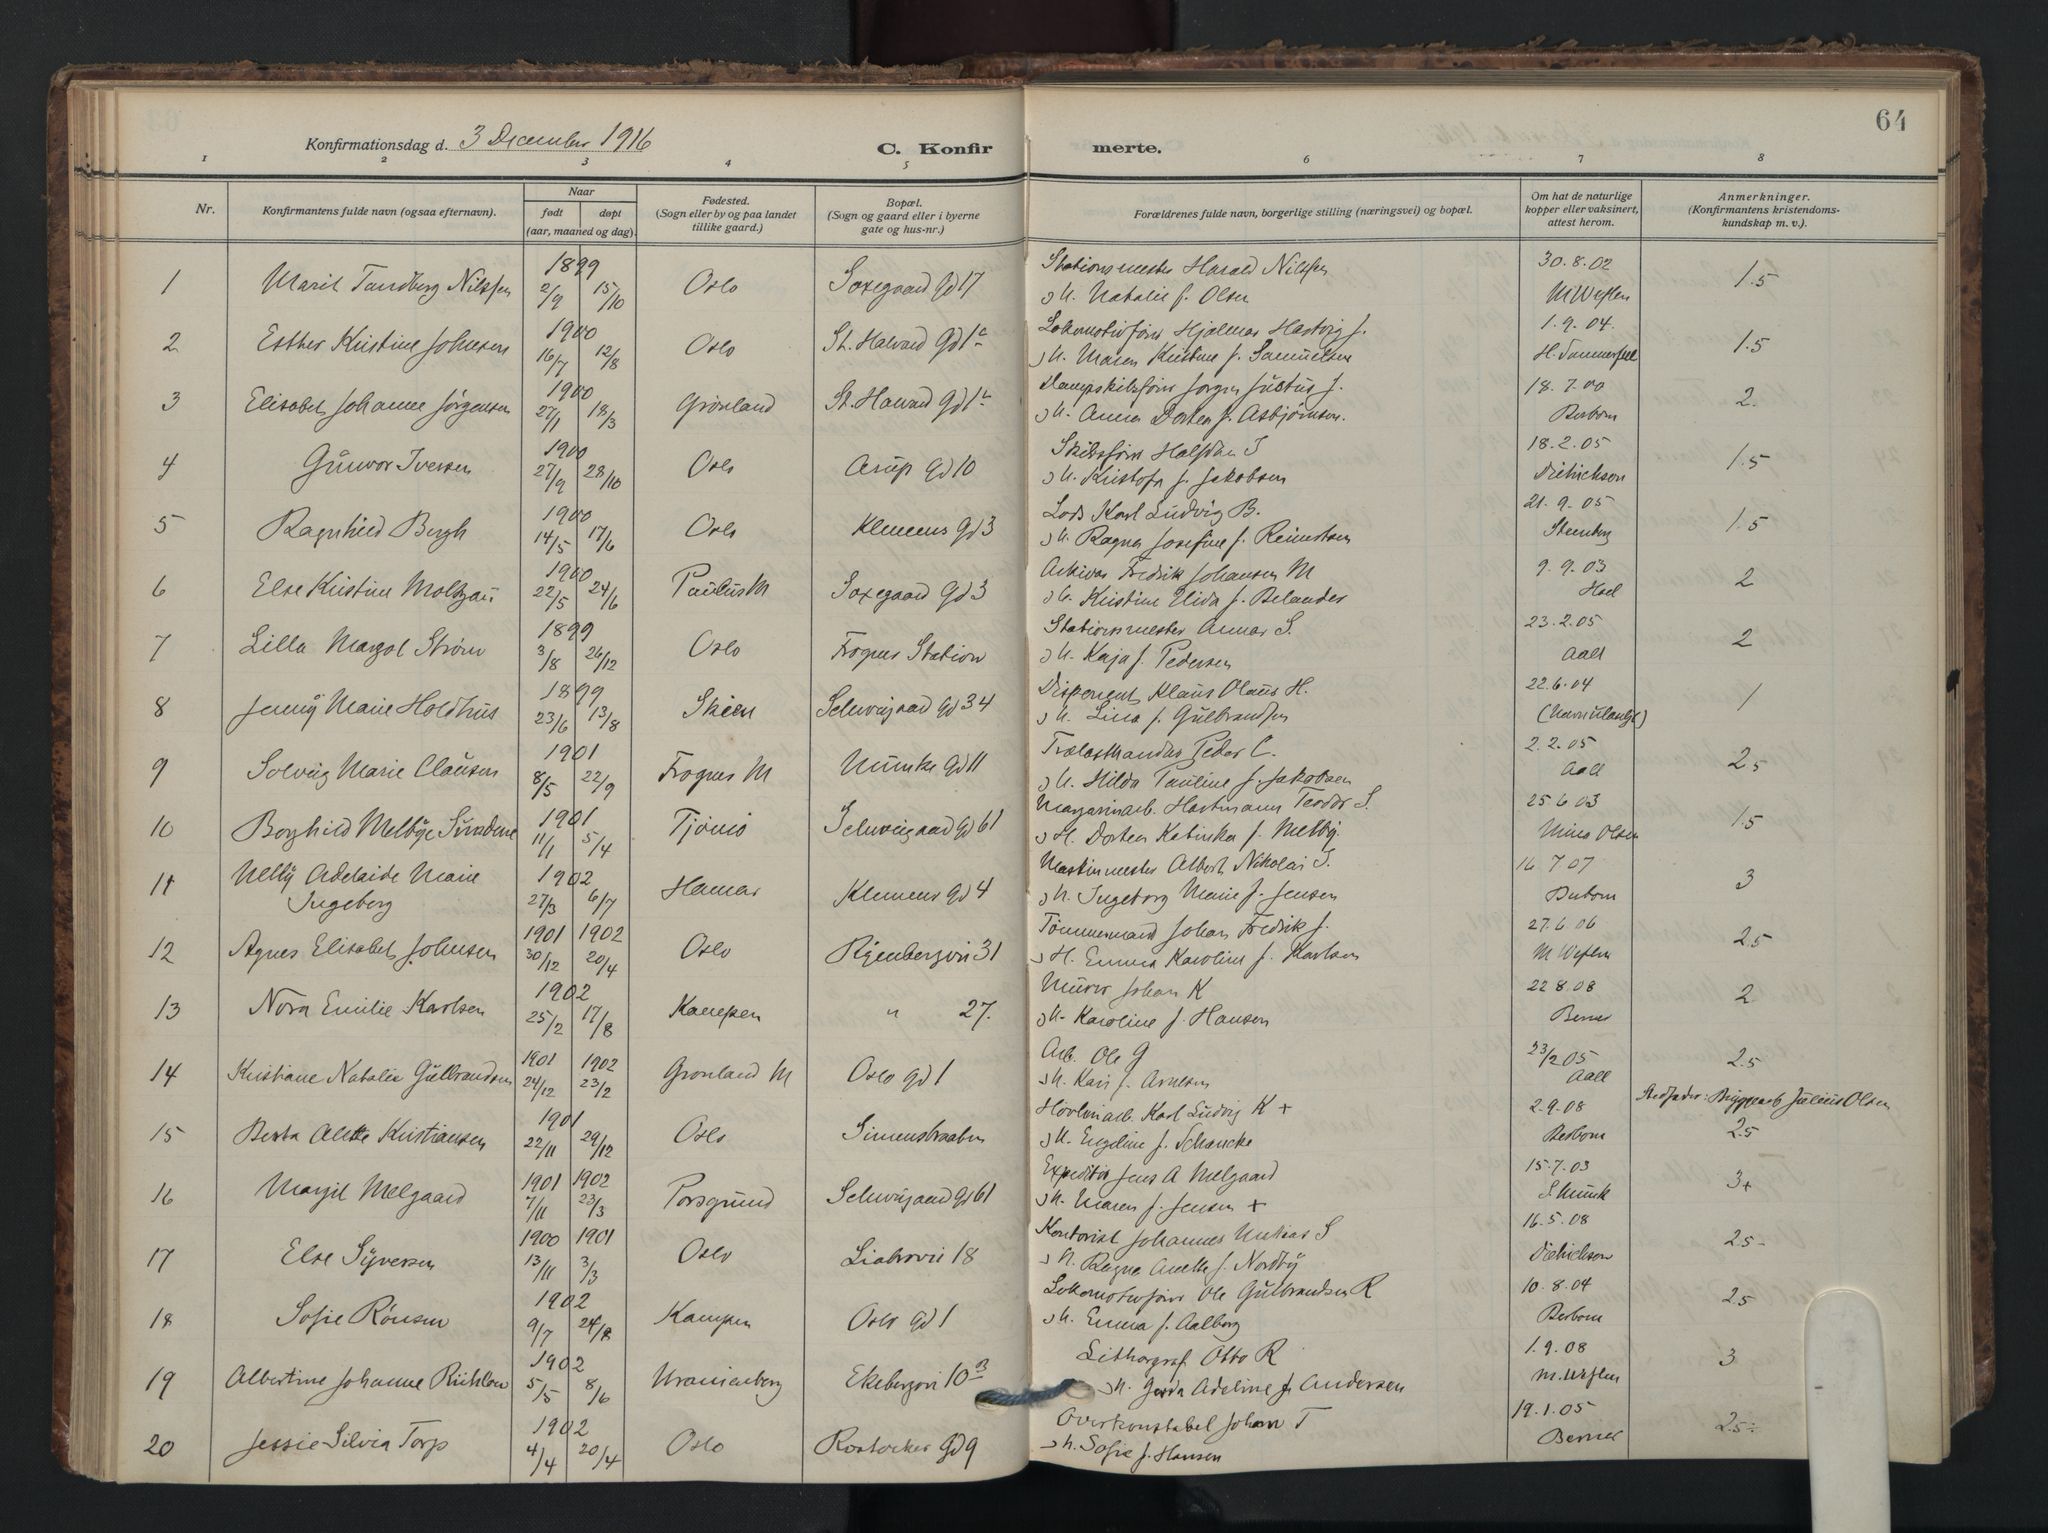 64
Konfirmationsdag d. 3 December 1916
C. Konfir merte.
1 2 3 4 5 6 7 8
Nr.
Konfirmantens fulde navn (ogsaa efternavn).
Naar
født døpt
(aar, maaned og dag).
Fødested.
(Sogn eller by og paa landet
tillike gaard.)
Bopæl.
(Sogn og gaard eller i byerne
gate og hus-nr.)
Forældrenes fulde navn, borgerlige stilling (næringsvei) og bopæl.
Om hat de naturlige
kopper eller vaksinert,
attest herom.
Anmerkninger.
(Konfirmantens kristendoms-
kundskap m. v.).
1899 Stationsmester Harald Nilssen 30.8.02
1 Marit Tandberg Nilssen 2/9 15/10 Oslo Saxegaard gd 17 og H. Natalie f. Olsen 1.5
1900 1.9.04.
2 Esther Kristine Johnsen 16/7 12/8 Oslo St. Halvard gd 1a og H. Maren Kristine f. Samuelsen 1.5
1900 18.7.00
3 Elisabet Johanne Jörgensen 27/1 18/3 Grönland St. Halvard gd og H. Anna f. Asbjörnsen. 2.
1900 Skibsförer Halfdan I 18.2.05
4 Gunvor Iversen 27/9 28/10 Oslo Arup gd 10 og H. f. Jakobsen Diedrichson 1.5
1900 Lods Karl Ludvig B. 21.9.05
5 Ragnhild Bergh 14/5 17/6 Oslo Klemens gd 3 og H. Ragna Josefine f. Stenberg 1.5
1900 Arkivar Fredrik Johansen M 9.9.03
6 Else Kristine Moltzau 22/5 24/6 Paulus M Saxegaard gd 3 og H. Kristine Elida f. Hoel 2
1899 Stationsmester S. 23.2.05
7 Lilla Margot Ström 3/8 26/12 Oslo Frogner Station og H. Kaja f. Pedersen Aall 2
1899 Disponent Klaus Olaus H. 22.6.04
8 Jenny Marie Holdhus 23/6 13/8 Skien Schweigaard gd 34 og H. Lina f. Gulbrandsen 1
1901 Trælasthandler Peder C. 2.2.05
9 Solveig Marie Clausen 8/5 22/9 Frogner M Munke gd 11 og H. Hilda Pauline f. Jakobsen Aall 2.5
1901 Margarinarb. Hartmann Teodor S. 25.6.03
10 Borghild Melbye 11/1 5/4 Tjömö Schweigaard gd 61 og H. Dorthea Katinka f. Melby. Olsen 1.5
1902 Maskinmester Albert Nikolai I. 16 7 07
11 Nelly Adelaide Marie
Ingeberg 27/3 6/7 Hamar Klemens gd 4 og H. Ingeborg Marie f. Jensen 3
1901 1902 Tömmermand Johan Fredrik J. 27.6.06
12 Agnes Elisabet Johnsen 30/12 20/4 Oslo Ryenbergvei 31 og H. Emma Karoline f. Karlsen 2.5
1902 Murer Johan K 22 8.08
13 Nora Emilie Karlsen 25/2 17/8 Kampen " 27. og H. Karoline f. Hansen Berner 2
1901 1902 Arb. Ole G 23/2 05
14 Kristiane Natalie Gulbrandsen 24/12 23/2 Grönland M Oslo gd 1 og H. Kari f. Arnesen Aall 2.5
1901 Hövleriarb. Karl Ludvig K + 2.9.08 Stedfader: Bryggearb Julius Olsen
15 Berta Alette Kristiansen 22/11 29/12 Oslo og H. Engeline f. Schancke 2.5
1901 1902 Expeditör Jens A Melgaard 15.7.03
16 Margit Melgaard 7/11 23/3 Porsgrund Schweigaard gd 61 og H. Maren f. Jensen + 3+
1900 1901 Kontorist Johannes S 16.5.08
17 Else Syversen 13/11 3/3 Oslo Liabrovei 18 og H. Anette f. Nordby Diedrichson 2.5-
1902 Lokomotivförer Ole Gulbrandsen R 10.8.04
18 Sofie Rönsen 9/7 24/8 Kampen Oslo gd 1 og H. Emma f. Aalborg 2.5
1902 Lithograf Otto R 1.9.08
19 Albertine Johanne 5/5 8/6 Uranienborg Ekebergvei 10B og H. Gerda Adeline f. Andersen 3
1902 Overkonstabel Johan T 19.1.05
20 Jessie Silvia Torp 4/4 20/4 Oslo Rostocker gd 9 og H. Sofie f. Hansen Berner 2.5-